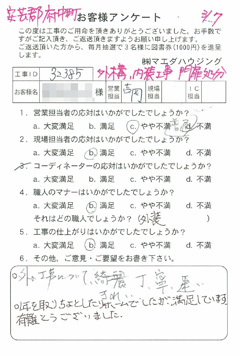 安芸郡府中町
9/7
お客様アンケート
この度は工事のご用命を頂きありがとうございました。お手数で
すがご記入頂き、ご返送頂きますようお願い申し上げます。
ご返送いただいた方から、毎月抽選で3名様に図書券(1000円)を進呈
します。
㈱マエダハウジング
工事ID 32385 外構、内装工事 門扉処分
お客様名 様 営業担当 現場担当 IC担当
1. 営業担当者の対応はいかがでしたでしょうか? 普通
a. 大変満足 b. 満足 c. やや不満 d. 不満
2. 現場担当者の対応はいかがでしたでしょうか?
a. 大変満足 b. 満足 c. やや不満 d. 不満
3. コーディネーターの対応はいかがでしたでしょうか?
a. 大変満足 b. 満足 c. やや不満 d. 不満
4. 職人のマナーはいかがでしたでしょうか?
a. 大変満足 b. 満足 c. やや不満 d. 不満
それはどの職人でしょうか? (外装)
5. 工事の仕上がりはいかがでしたでしょうか?
a. 大変満足 b. 満足 c. やや不満 d. 不満
6. その他、ご意見・ご要望をお書き下さい。
工事について、綺麗 丁寧 早い
年を取りちょっとしたリホームでしたが満足しています
有難とうございました。